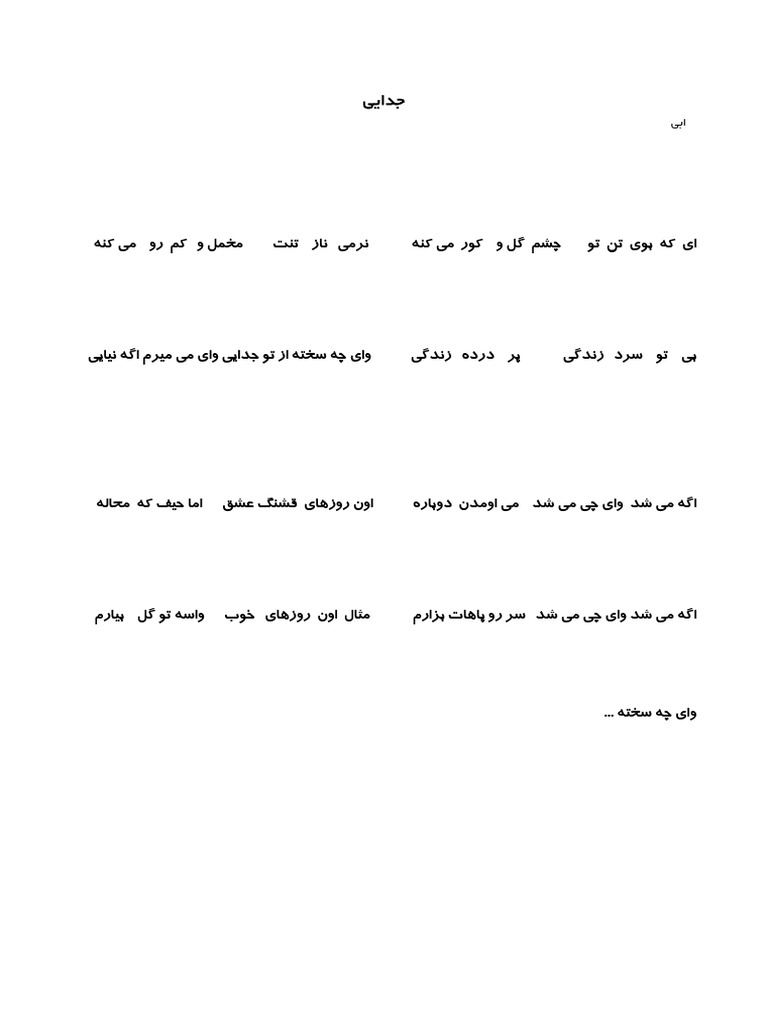 جدایی
ابی
ای که بوی تن تو چشم گل و کور می کنه نرمی ناز تنت مخمل و کم رو می کنه
بی تو سرد زندگی پر درده زندگی وای چه سخته از تو جدایی وای می میرم اگه نیایی
اگه می شد وای چی می شد می اومدن دوباره اون روزهای قشنگ عشق اما حیف که محاله
اگه می شد وای چی می شد سر رو پاهات بزارم مثال اون روزهای خوب واسه تو گل بیارم
وای چه سخته ...